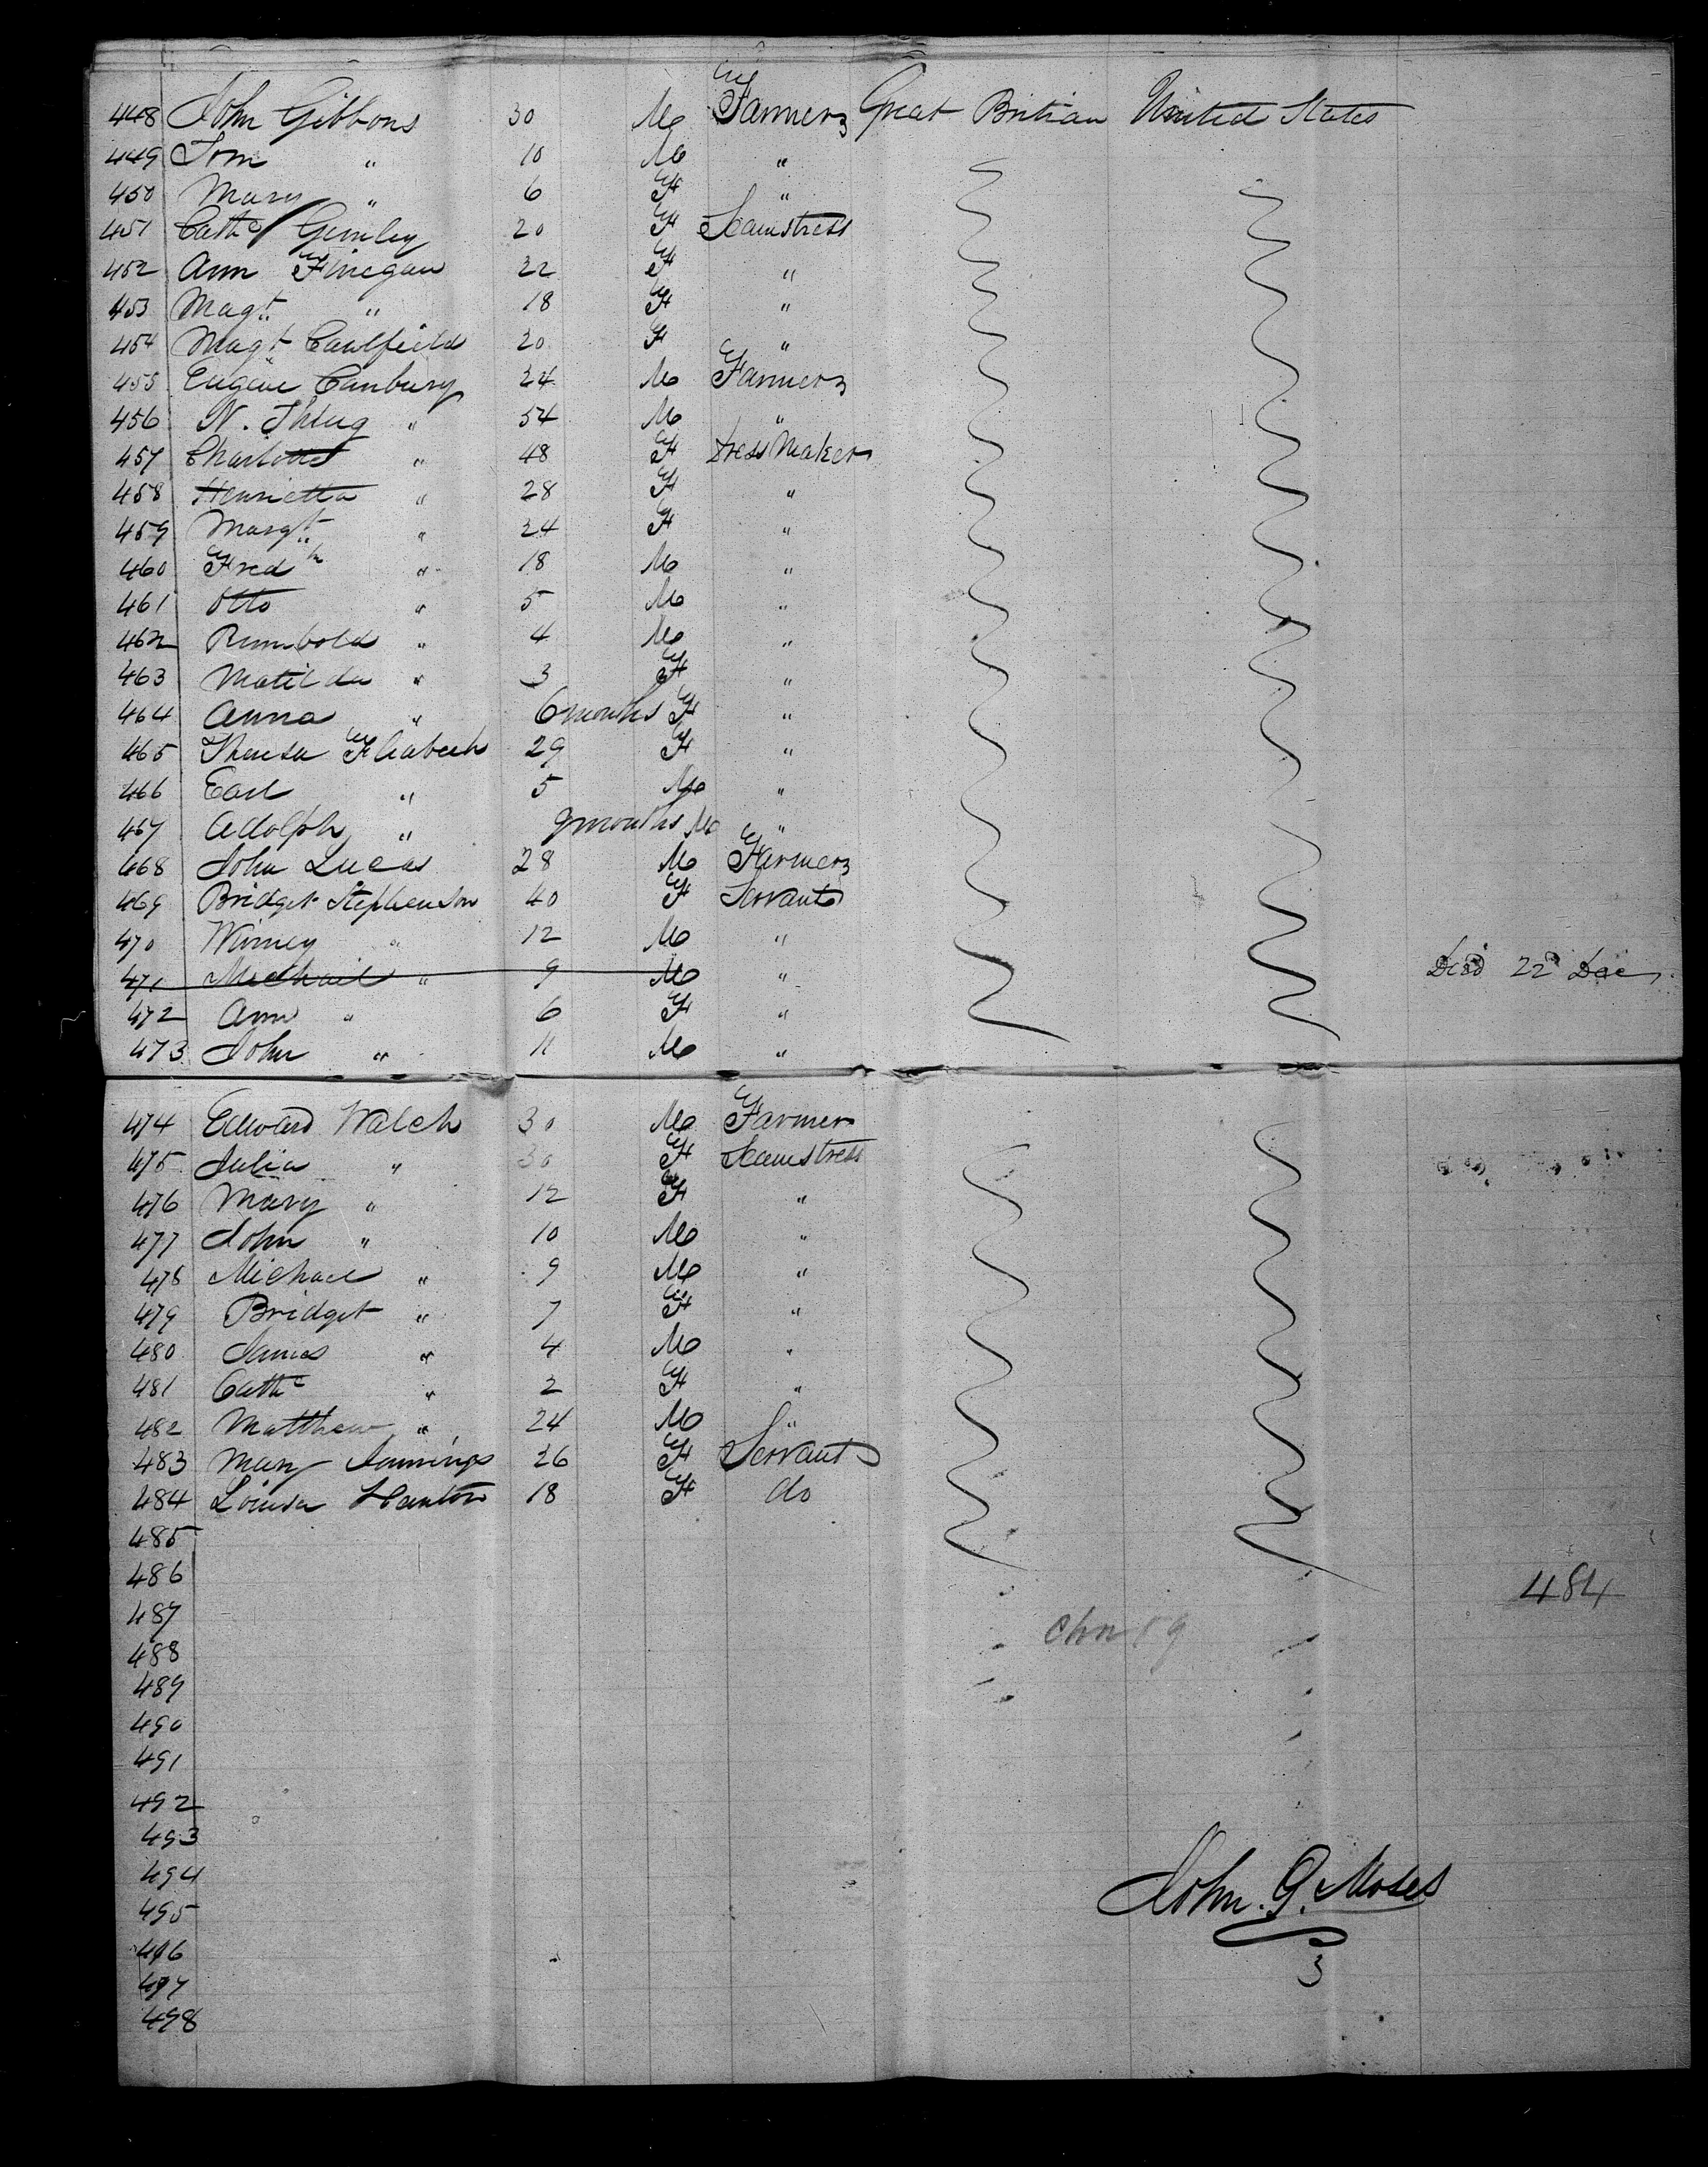 448 John Gibbons 30 M Farmer Great Britian United States
449 Tom " 10 M "
450 Mary " 6 F "
451 Cathe Gimley 20 F Seamstress
452 Ann Finegan 22 F "
453 Magt " 18 F "
454 Magt Caulfield 20 F "
455 Eugene Canbury 24 M Farmer
456 N. " 54 M "
457 Charlotte " 48 F Dress Maker
458 Henrietta " 28 F "
459 Margt " 24 F "
460 Fredk " 18 M "
461 Otto " 5 M "
462 Rumbold " 4 M "
463 Matilda " 3 F "
464 Anna " 6 months F "
465 Theresa 29 F "
466 Earl " 5 M "
467 Adolph " 9 months M "
468 John Lucas 28 M Farmer
469 Bridget Stephenson 40 F Servant
470 Winney " 12 M "
471 Michail " 9 M " Died 22d Dec
472 Ann " 6 F "
473 John " 11 M "
474 Edward Walch 30 M Farmer
475 Julia " 30 F Seamstress
476 Mary " 12 F "
477 John " 10 M "
478 Michael " 9 M "
479 Bridget " 7 F "
480 James " 4 M "
481 Cathe " 2 F "
482 Matthew " 24 M "
483 Mary Jennings 26 F Servant
484 Louisa Hanton 18 F do
485
486 484
487
488
489
490
491
492
493
494
John. G. Moses
495
496
497
498